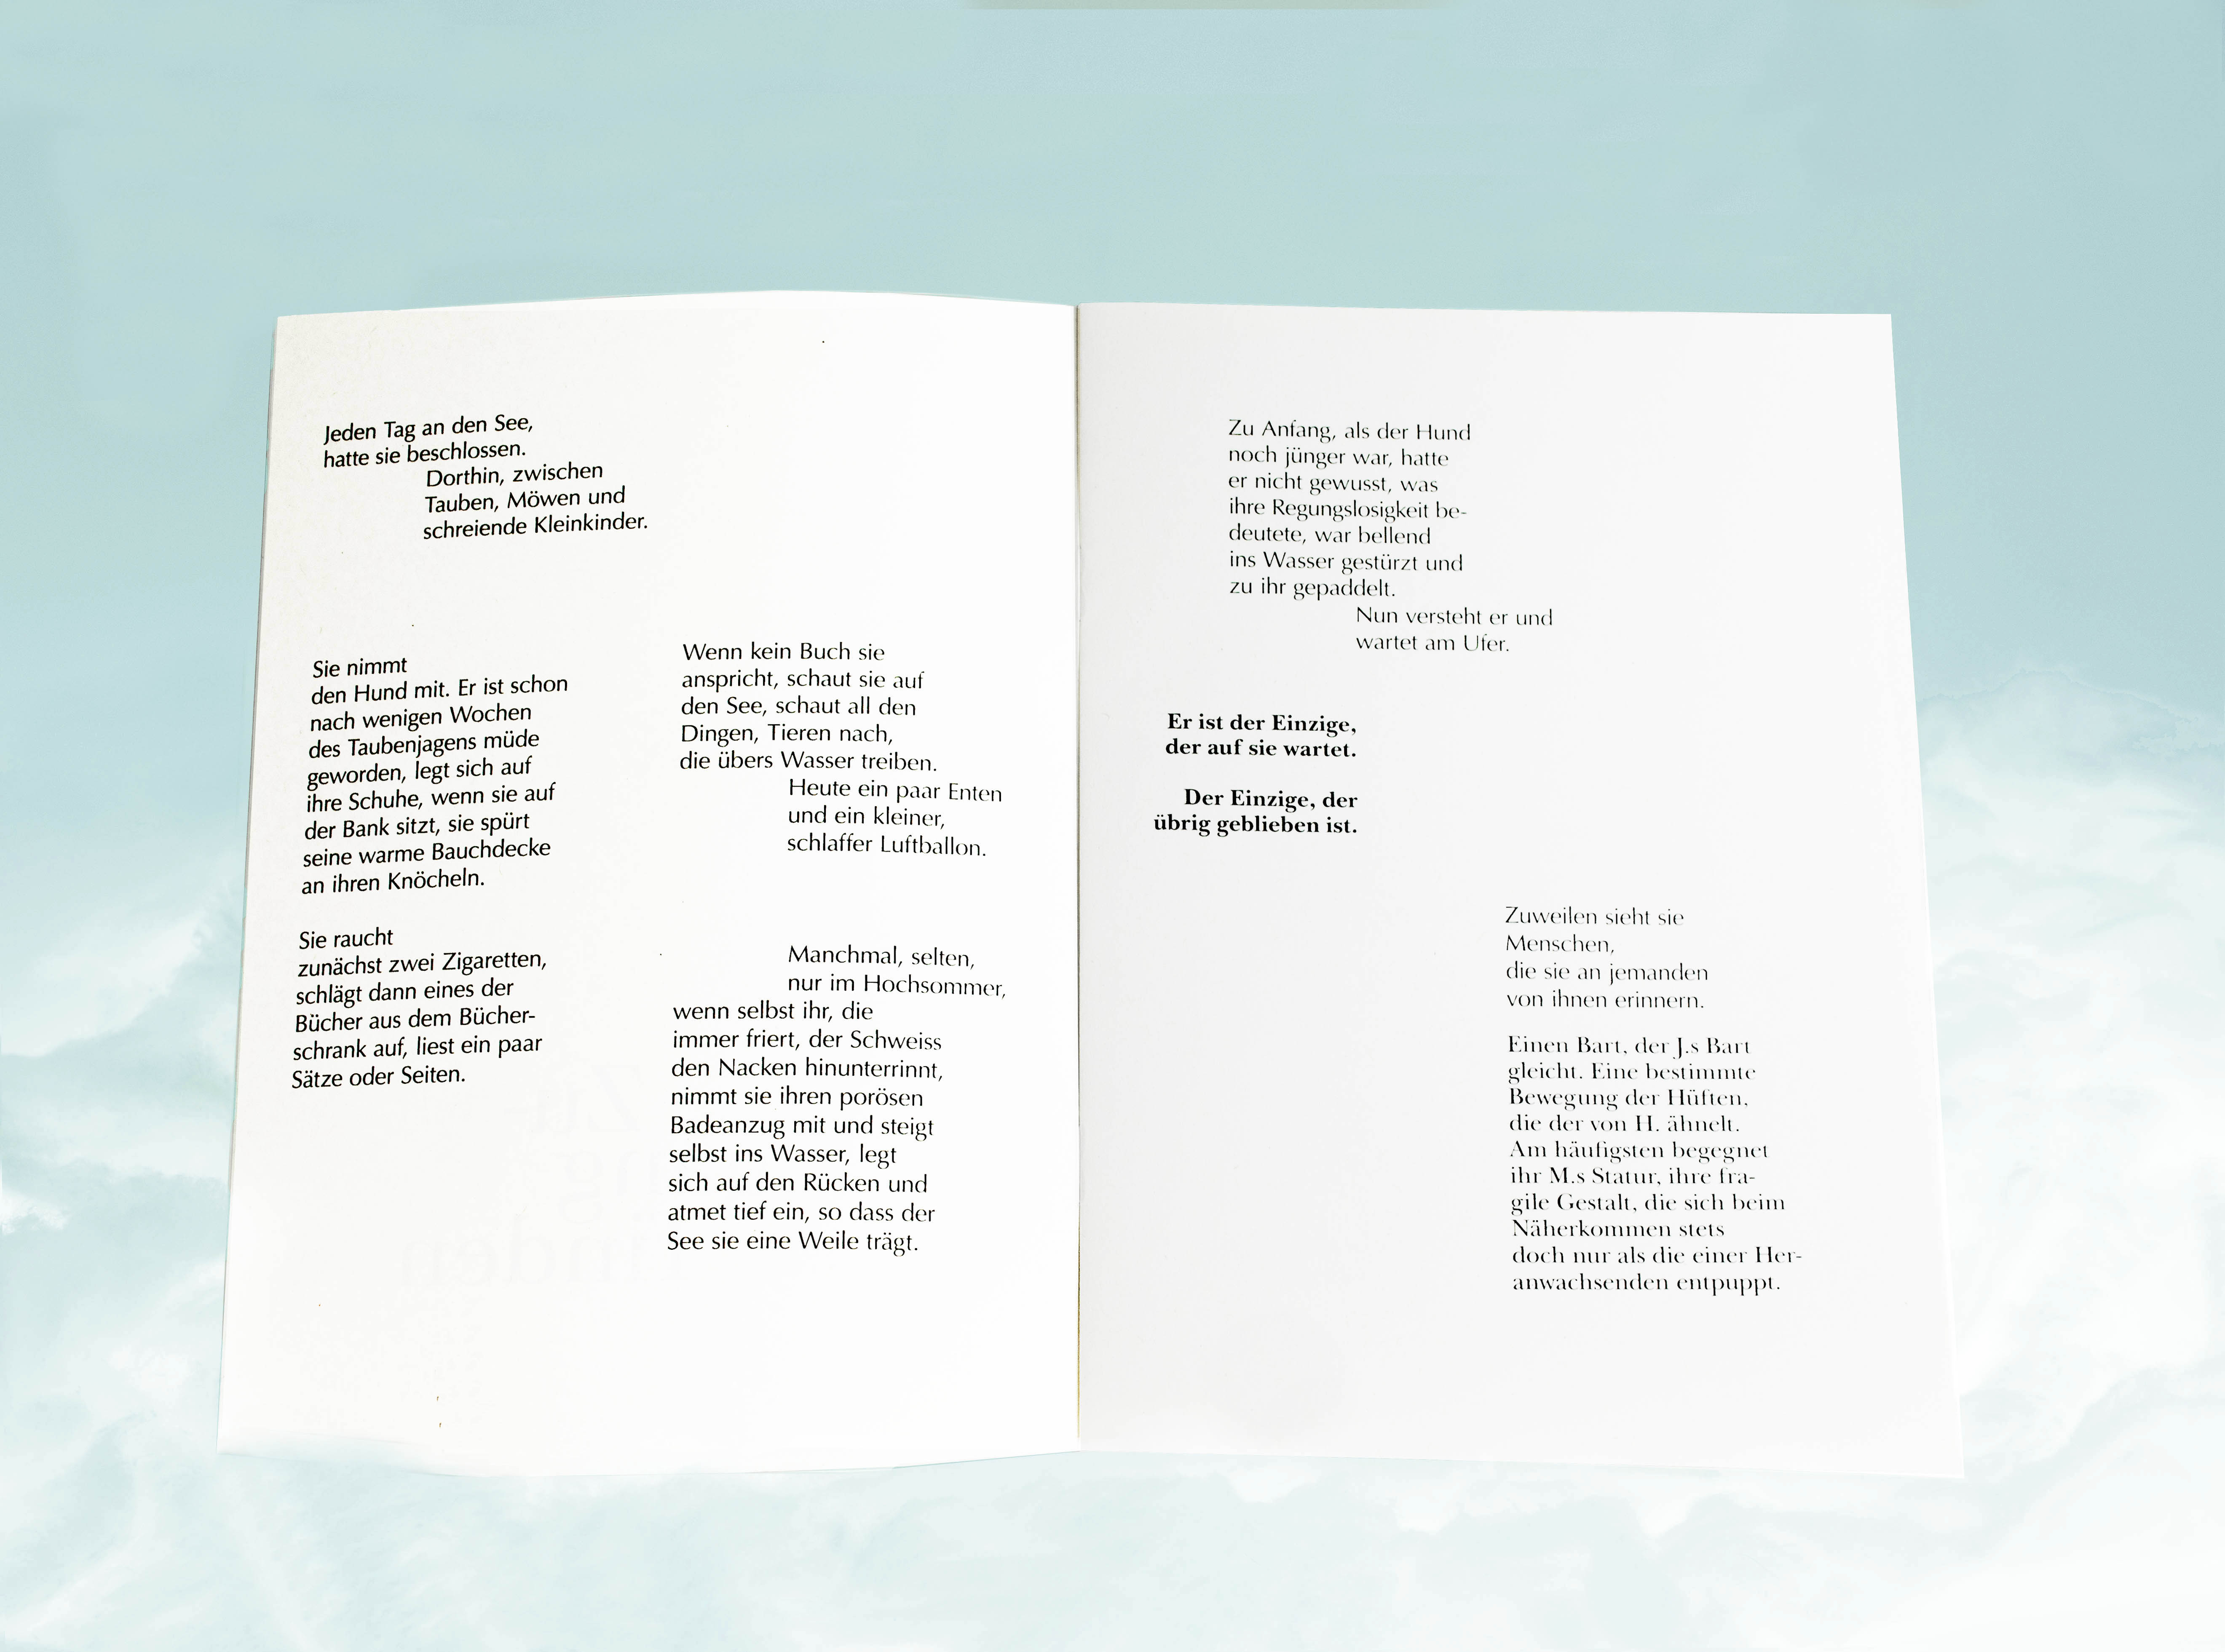 Jeden Tag an den See,
hatte sie beschlossen.
Dorthin, zwischen
Tauben, Möwen und
schreiende Kleinkinder.
Sie nimmt
den Hund mit. Er ist schon
nach wenigen Wochen
des Taubenjagens müde
geworden, legt sich auf
ihre Schuhe, wenn sie auf
der Bank sitzt, sie spürt
seine warme Bauchdecke
an ihren Knöcheln.
Sie raucht
zunächst zwei Zigaretten,
schlägt dann eines der
Bücher aus dem Bücher-
schrank auf, liest ein paar
Sätze oder Seiten.
Wenn kein Buch sie
anspricht, schaut sie auf
den See, schaut all den
Dingen, Tieren nach,
die übers Wasser treiben.
Heute ein paar Enten
und ein kleiner,
schlaffer Luftballon.
Manchmal, selten,
nur im Hochsommer,
wenn selbst ihr, die
immer friert, der Schweiss
den Nacken hinunterrinnt,
nimmt sie ihren porösen
Badeanzug mit und steigt
selbst ins Wasser, legt
sich auf den Rücken und
atmet tief ein, so dass der
See sie eine Weile trägt.
Zu Anfang, als der Hund
noch jünger war, hatte
er nicht gewusst, was
ihre Regungslosigkeit be-
deutete, war bellend
ins Wasser gestürzt und
zu ihr gepaddelt.
Nun versteht er und
wartet am Ufer.
Er ist der Einzige,
der auf sie wartet.
Der Einzige, der
übrig geblieben ist.
Zuweilen sieht sie
Menschen,
die sie an jemanden
von ihnen erinnern.
Einen Bart, der J.s Bart
gleicht. Eine bestimmte
Bewegung der Hüften,
die der von H. ähnelt.
Am häufigsten begegnet
ihr M.s Statur, ihre fra-
gile Gestalt, die sich beim
Näherkommen stets
doch nur als die einer Her-
anwachsenden entpuppt.